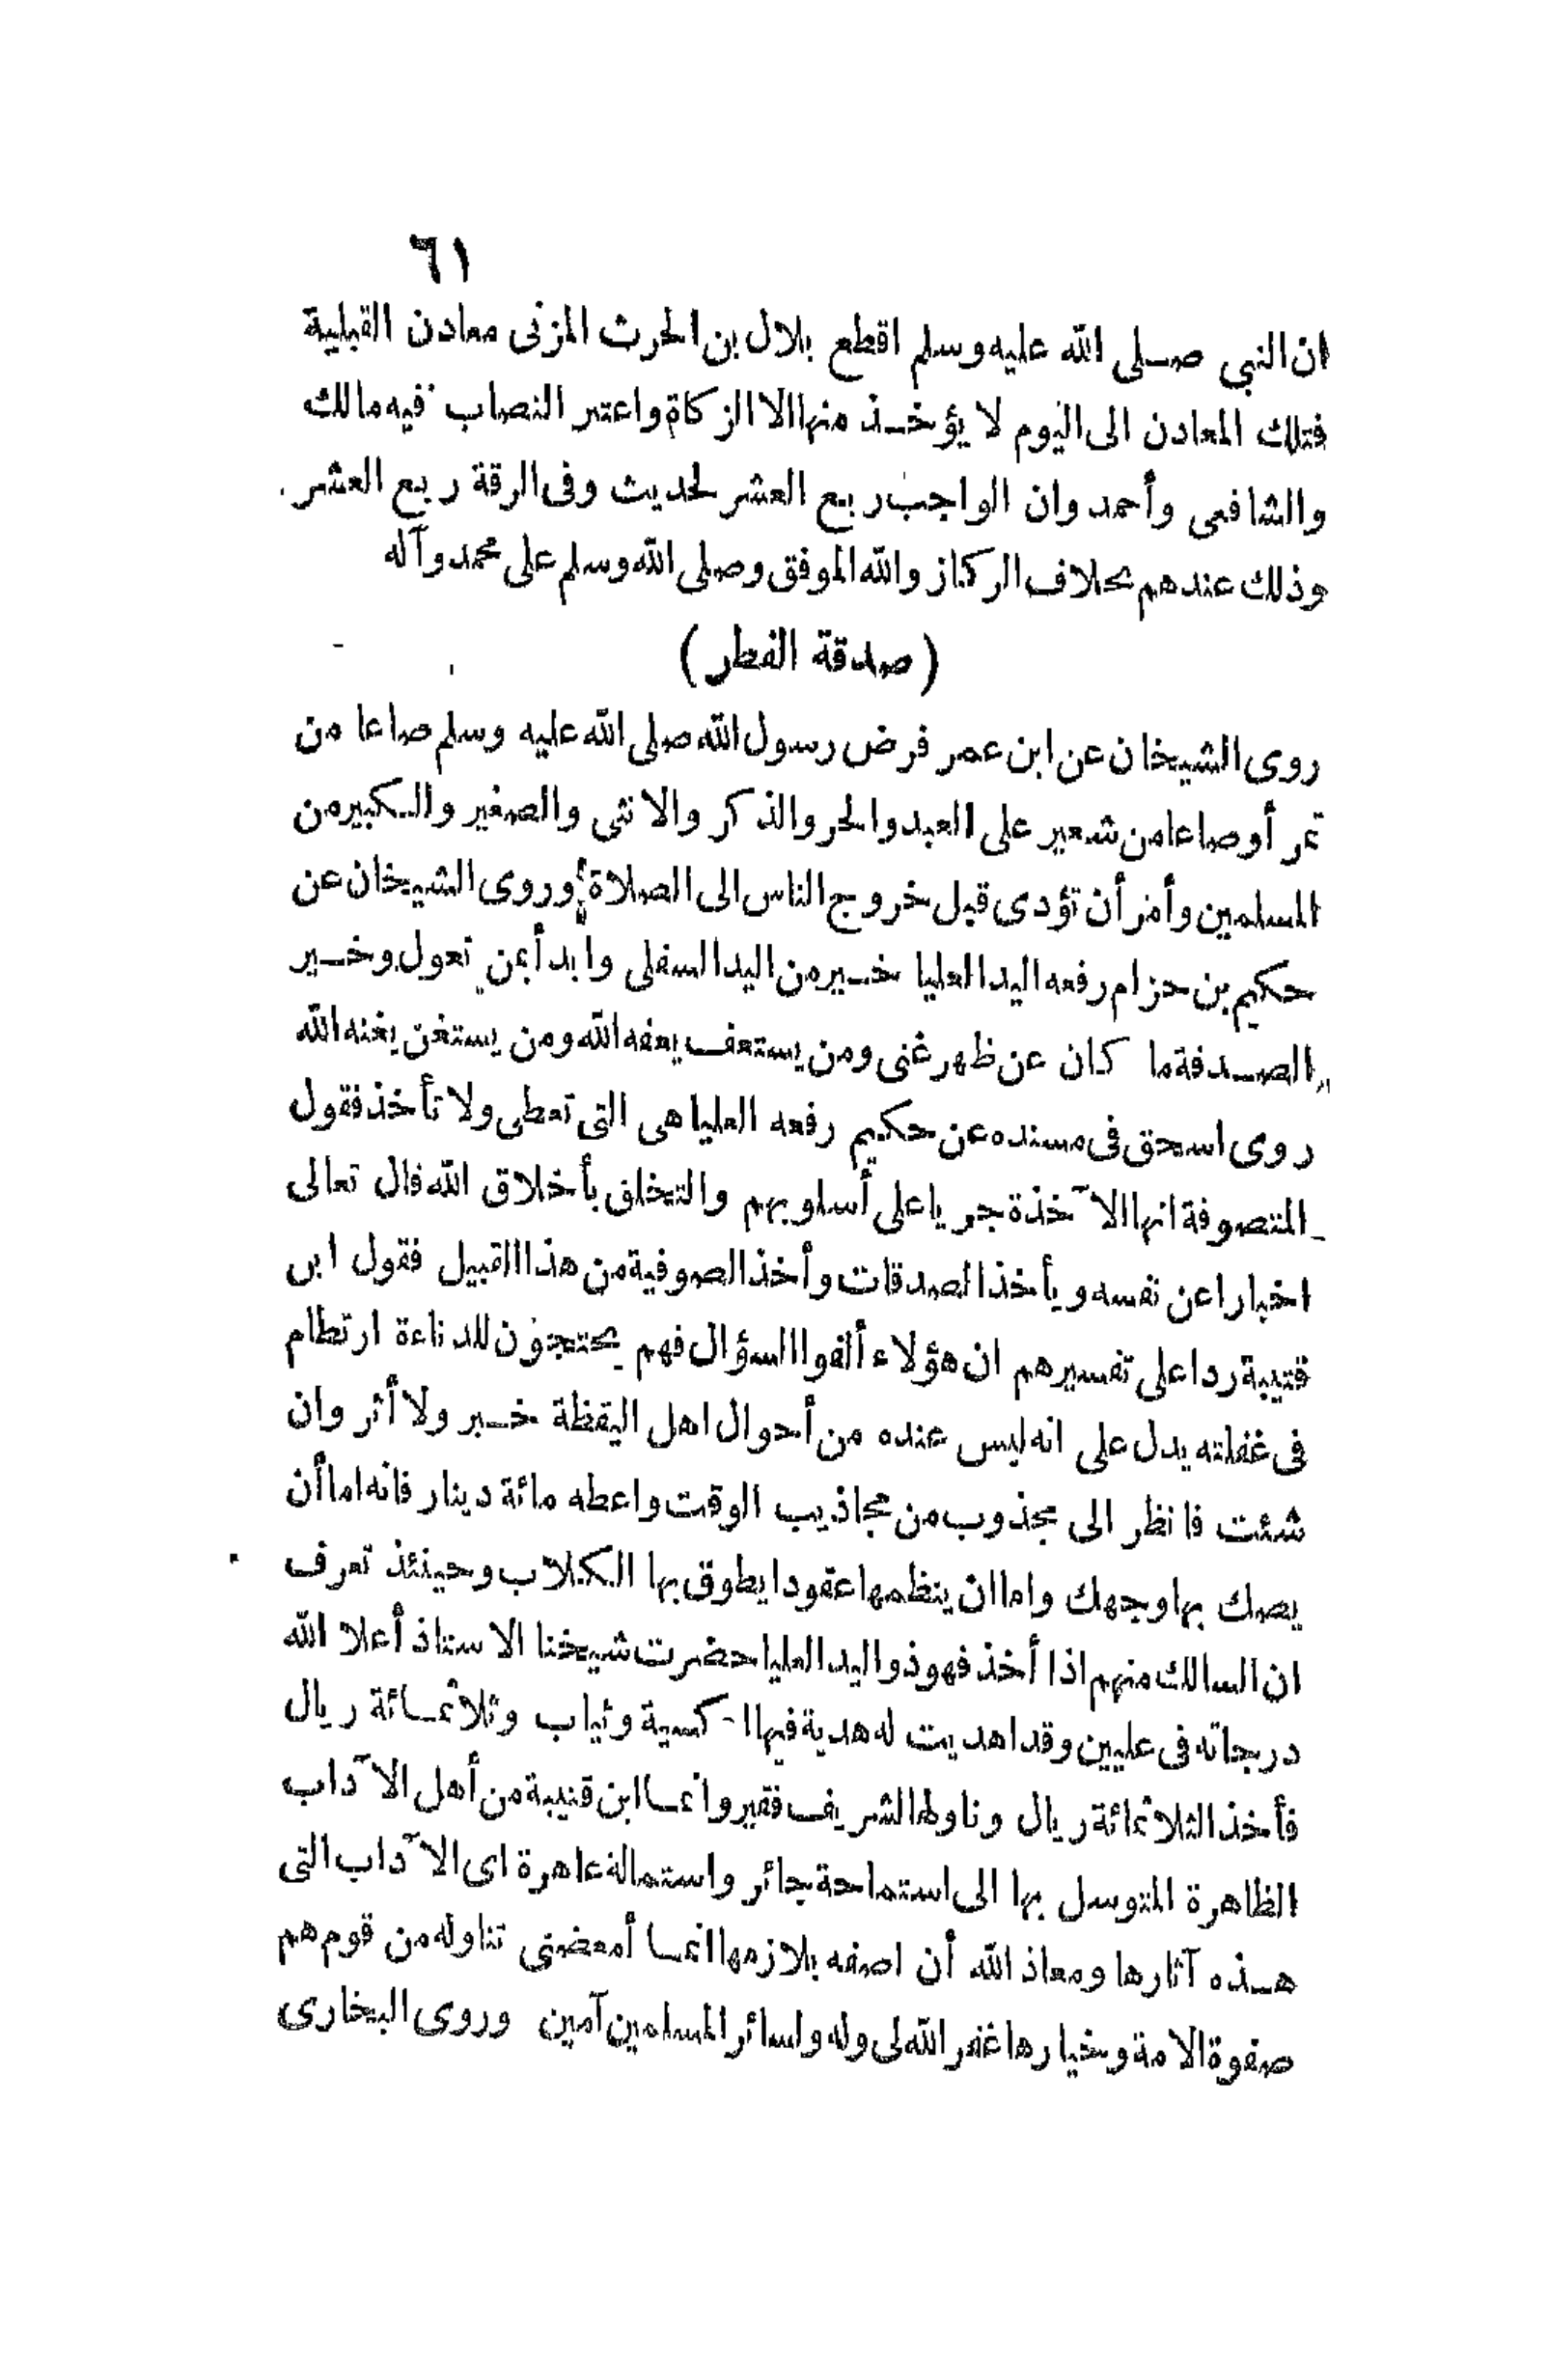 ٦١
ان النبي صلى الله عليه وسلم اقطع بلال بن الحرث المزنى معادن القبلية
فتلك المعادن الى اليوم لا يؤخذ منها الا الزكاة واعتبر النصاب فيه مالك
والشافعى وأحمد وان الواجب ربع العشر لحديث وفى الرقة ربع العشر
وذلك عندهم بخلاف الركاز والله الموفق وصلى الله وسلم على محمد وآله
(صدقة الفطر)
روى الشيخان عن ابن عمر فرض رسول الله صلى الله عليه وسلم صاعا من
تمر أو صاعا من شعير على العبد والحر والذكر والانثى والصغير والكبير من
المسلمين وأمر أن تؤدى قبل خروج الناس الى الصلاة وروى الشيخان عن
حكيم بن حزام رفعه اليد العليا خير من اليد السفلى وابدأ بمن تعول وخير
الصدقة ما كان عن ظهر غنى ومن يستعف يعفه الله ومن يستغن يغنه الله
روى اسحق فى مسنده عن حكيم رفعه العليا هى التى تعطى ولا تأخذ فقول
المتصوفة انها الآخذة جريا على أسلوبهم والتخلق بأخلاق الله قال تعالى
اخبارا عن نفسه ويأخذ الصدقات وأخذ الصوفية من هذا القبيل فقول ابن
قتيبة ردا على تفسيرهم ان هؤلاء ألفوا السؤال فهم يحتجون للدناءة ارتطام
فى غفلته يدل على انه ليس عنده من أحوال اهل اليقظة خبر ولا أثر وان
شئت فانظر الى مجذوب من مجاذيب الوقت واعطه مائة دينار فانه اما أن
يصك بها وجهك واما ان ينظمها عقودا يطوق بها الكلاب وحينئذ تعرف
ان السالك منهم اذا أخذ فهو ذو اليد العليا حضرت شيخنا الاستاذ أعلا الله
درجاته فى عليين وقد اهديت له هدية فيها اكسية وثياب وثلاثمائة ريال
فأخذ الثلاثمائة ريال وناولها الشريف فقير وانما ابن قتيبة من أهل الآداب
الظاهرة المتوسل بها الى استماحة جائر واستمالة عاهرة اى الآداب التى
هذه آثارها ومعاذ الله أن اصفه بلازمها انما أمعضنى تناوله من قوم هم
صفوة الامة وخيارها غفر الله لى وله ولسائر المسلمين آمين وروى البخارى